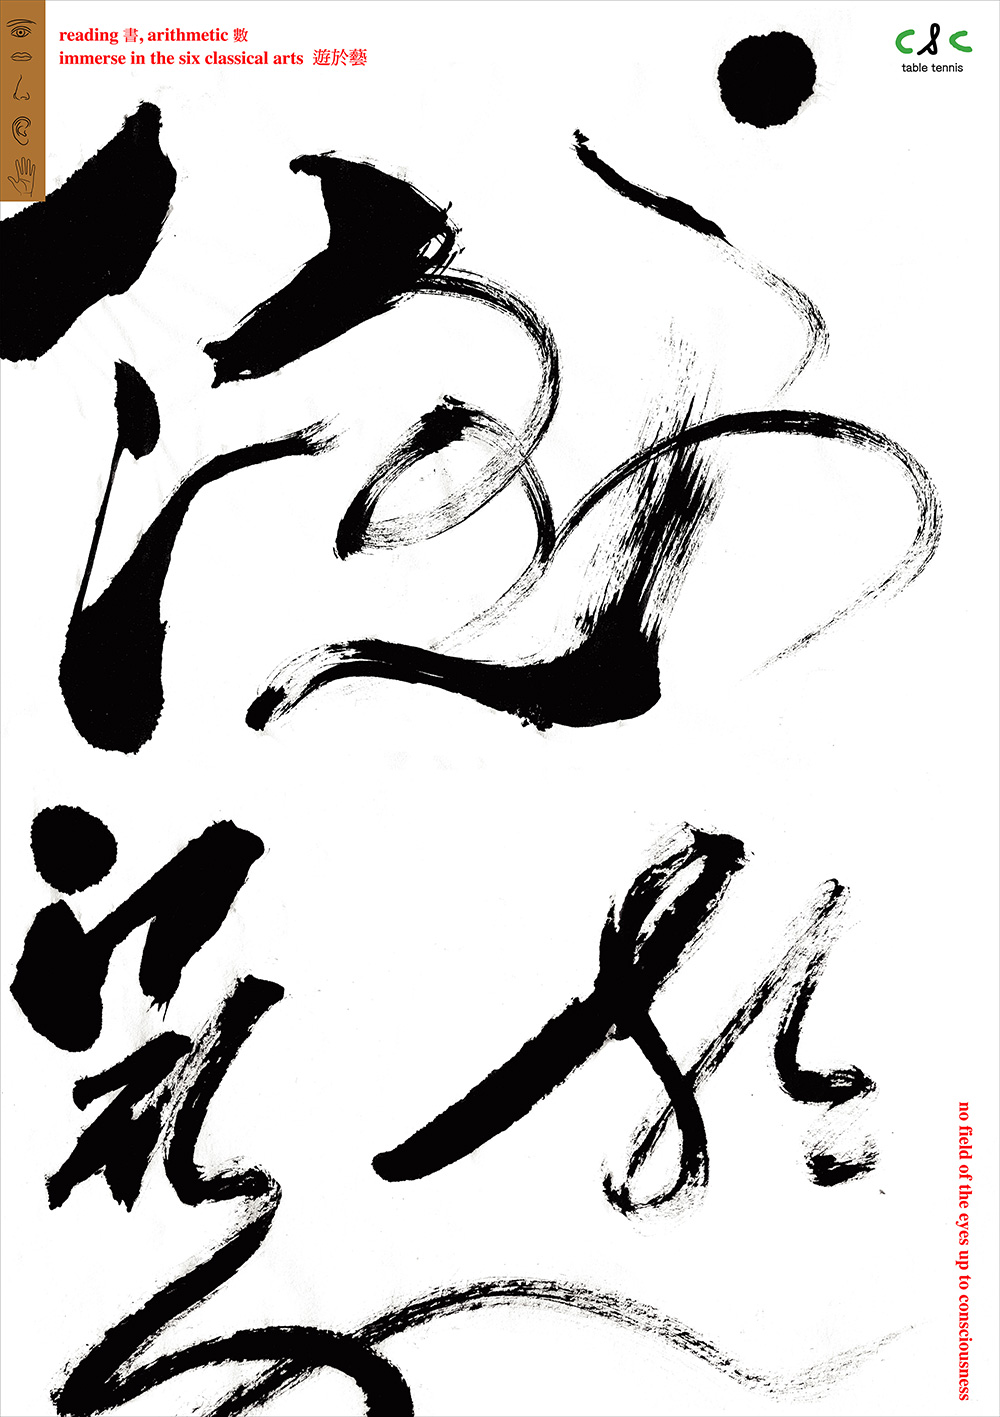 reading 書, arithmetic 數
immerse in the six classical arts 遊於藝
csc
table tennis
遊
於
藝
no field of the eyes up to consciousness